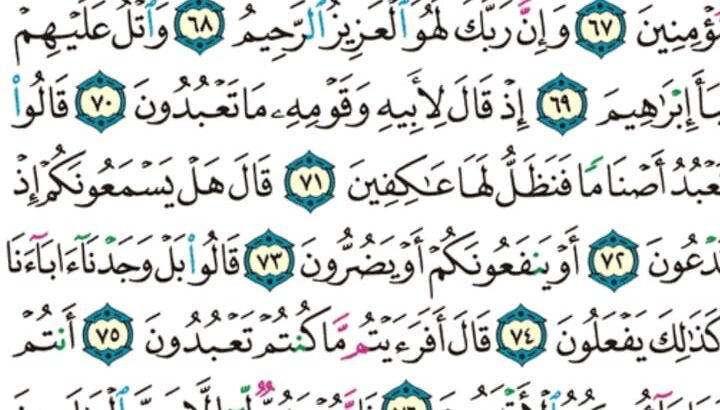 ؤْمِنِينَ ٦٧ وَإِنَّ رَبَّكَ لَهُوَ ٱلْعَزِيزُ ٱلرَّحِيمُ ٦٨ وَٱتْلُ عَلَيْهِمْ
بَأَ إِبْرَٰهِيمَ ٦٩ إِذْ قَالَ لِأَبِيهِ وَقَوْمِهِۦ مَا تَعْبُدُونَ ٧٠ قَالُوا۟
عْبُدُ أَصْنَامًا فَنَظَلُّ لَهَا عَـٰكِفِينَ ٧١ قَالَ هَلْ يَسْمَعُونَكُمْ إِذْ
دْعُونَ ٧٢ أَوْ يَنفَعُونَكُمْ أَوْ يَضُرُّونَ ٧٣ قَالُوا۟ بَلْ وَجَدْنَآ ءَابَآءَنَا
كَذَٰلِكَ يَفْعَلُونَ ٧٤ قَالَ أَفَرَءَيْتُم مَّا كُنتُمْ تَعْبُدُونَ ٧٥ أَنتُمْ